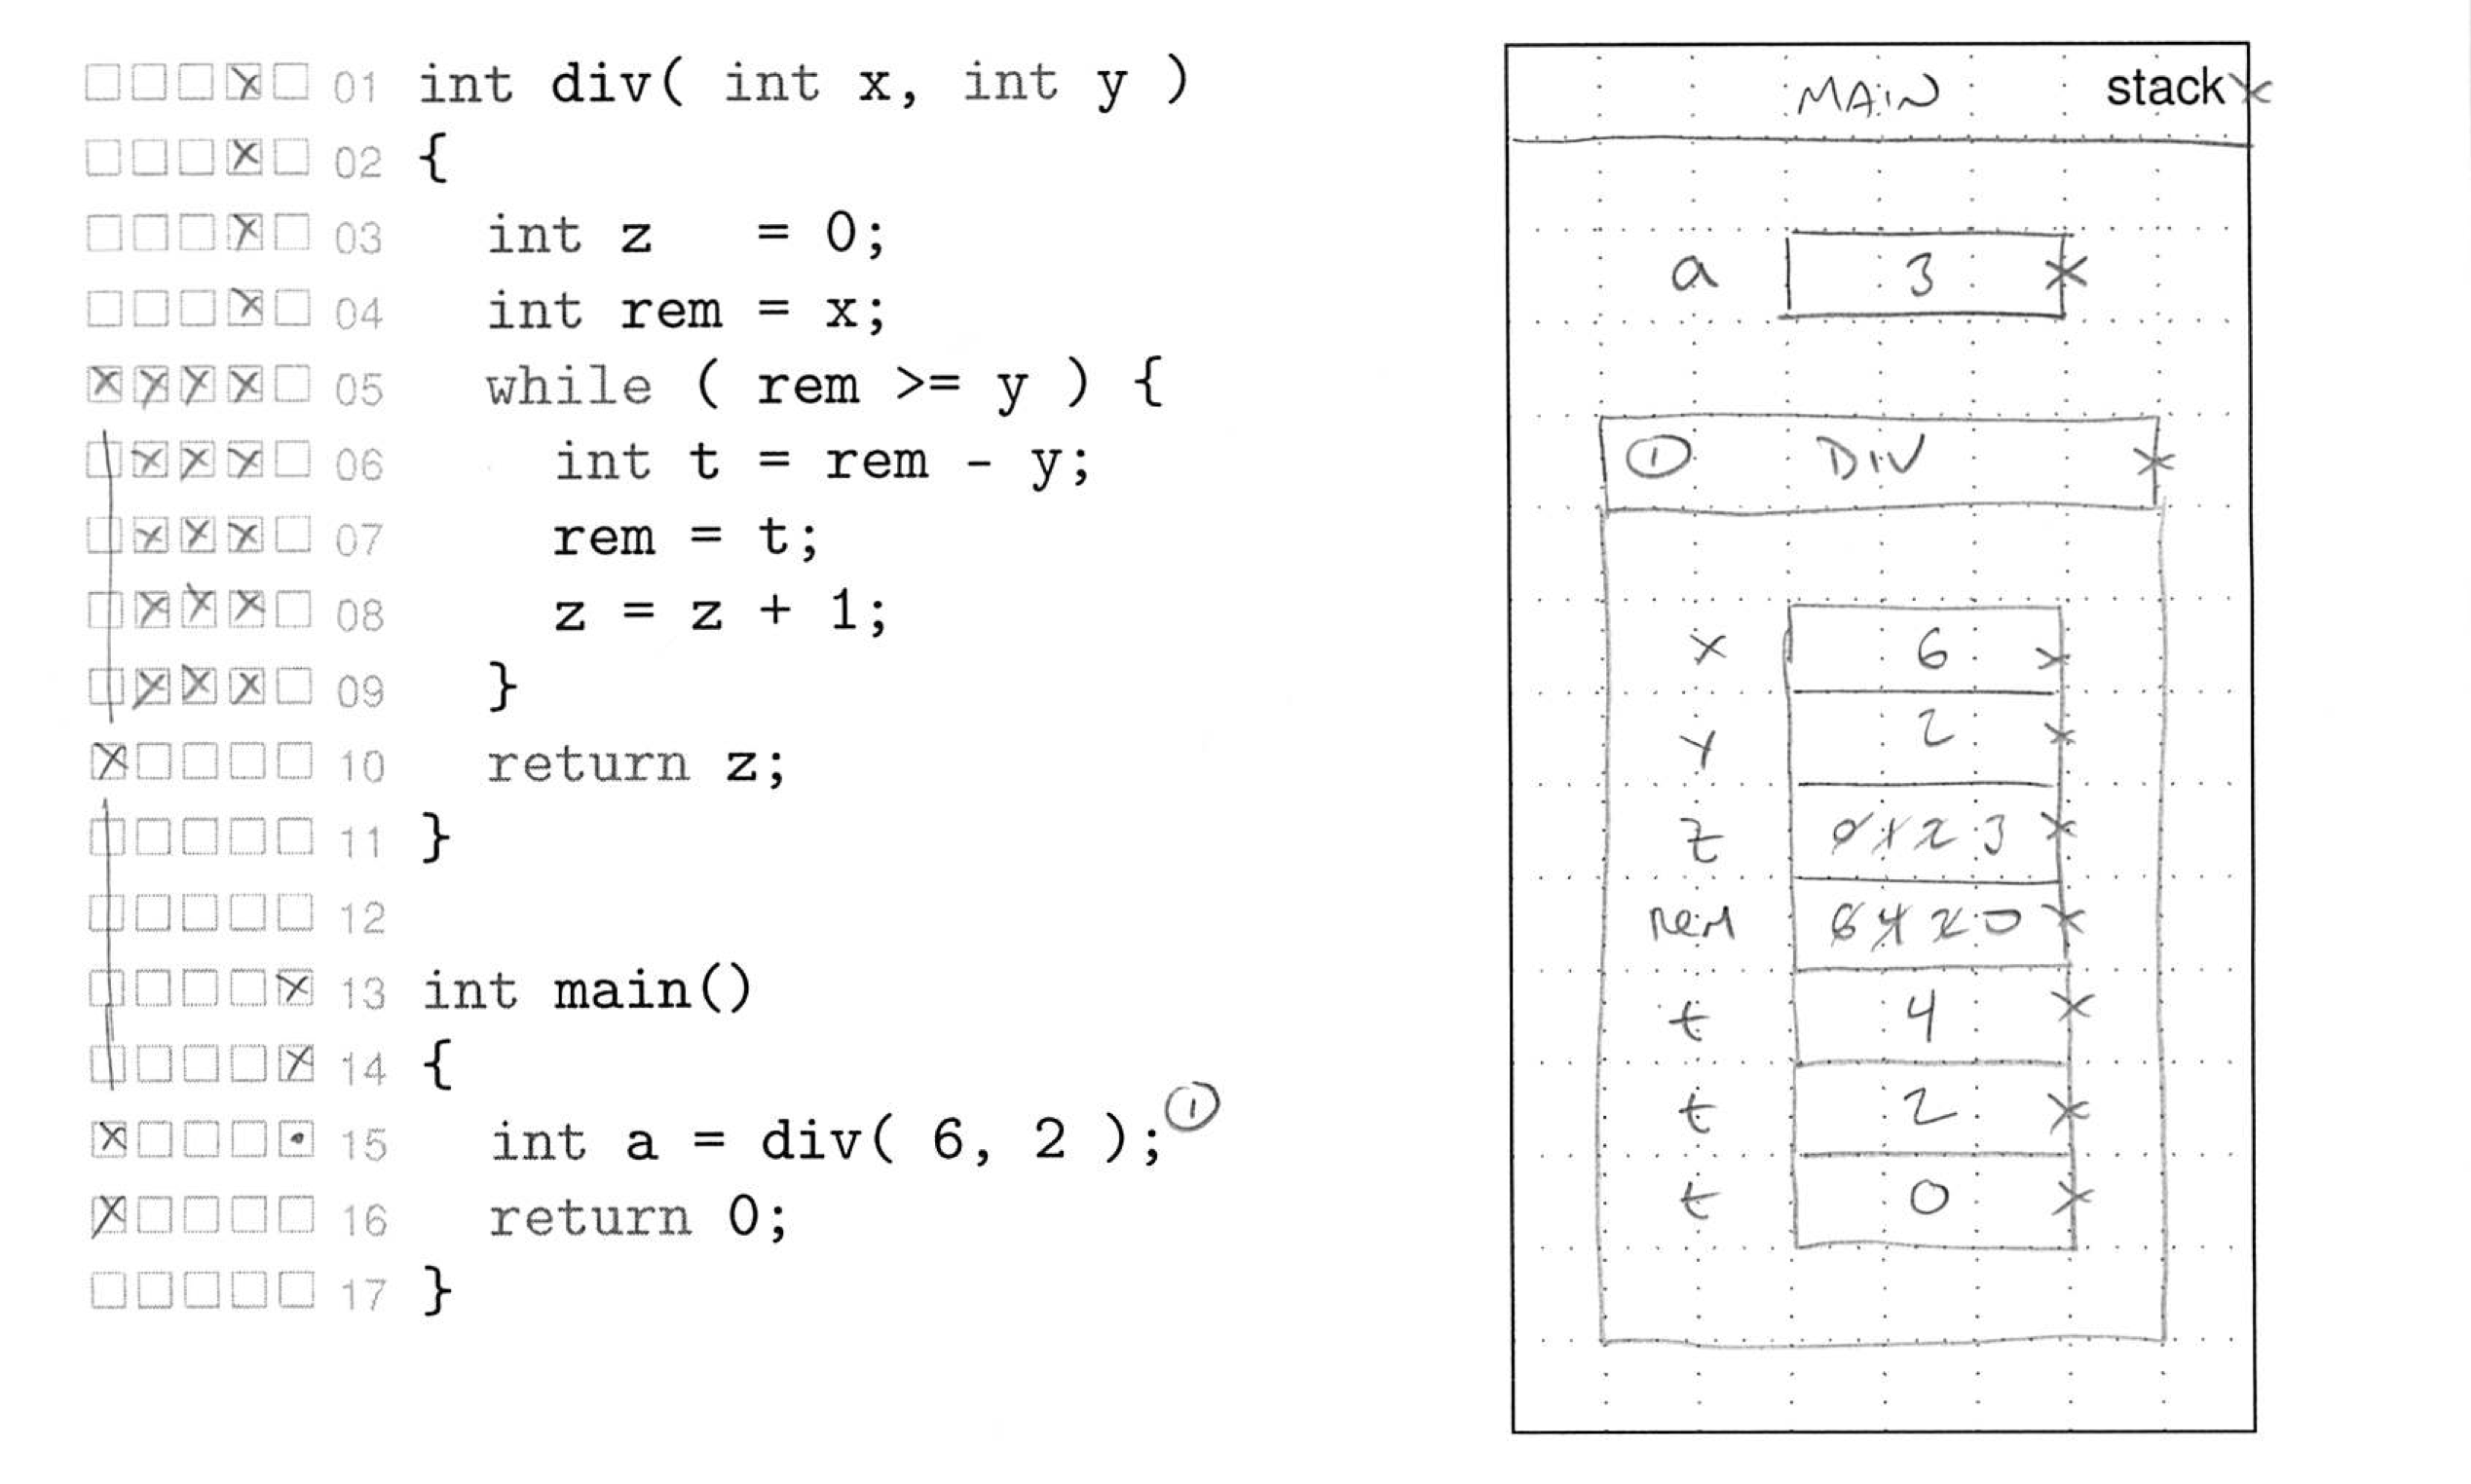 01 int div( int x, int y )
02 {
03 int z = 0;
04 int rem = x;
05 while ( rem >= y ) {
06 int t = rem - y;
07 rem = t;
08 z = z + 1;
09 }
10 return z;
11 }
12
13 int main()
14 {
15 int a = div( 6, 2 ); ①
16 return 0;
17 }
MAIN stack
a 3
① DIV
x 6
y 2
z 0 1 2 3
rem 6 4 2 0
t 4
t 2
t 0